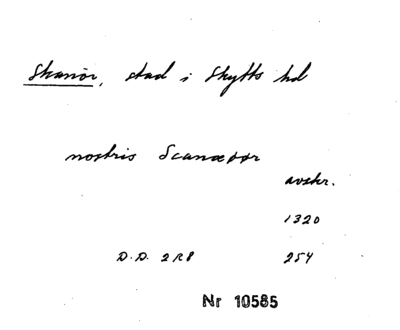 Skanör, stad i Skytts hd
nostris Scanæøør
avskr.
1320
D.D. 2 R 8 254
Nr 10585